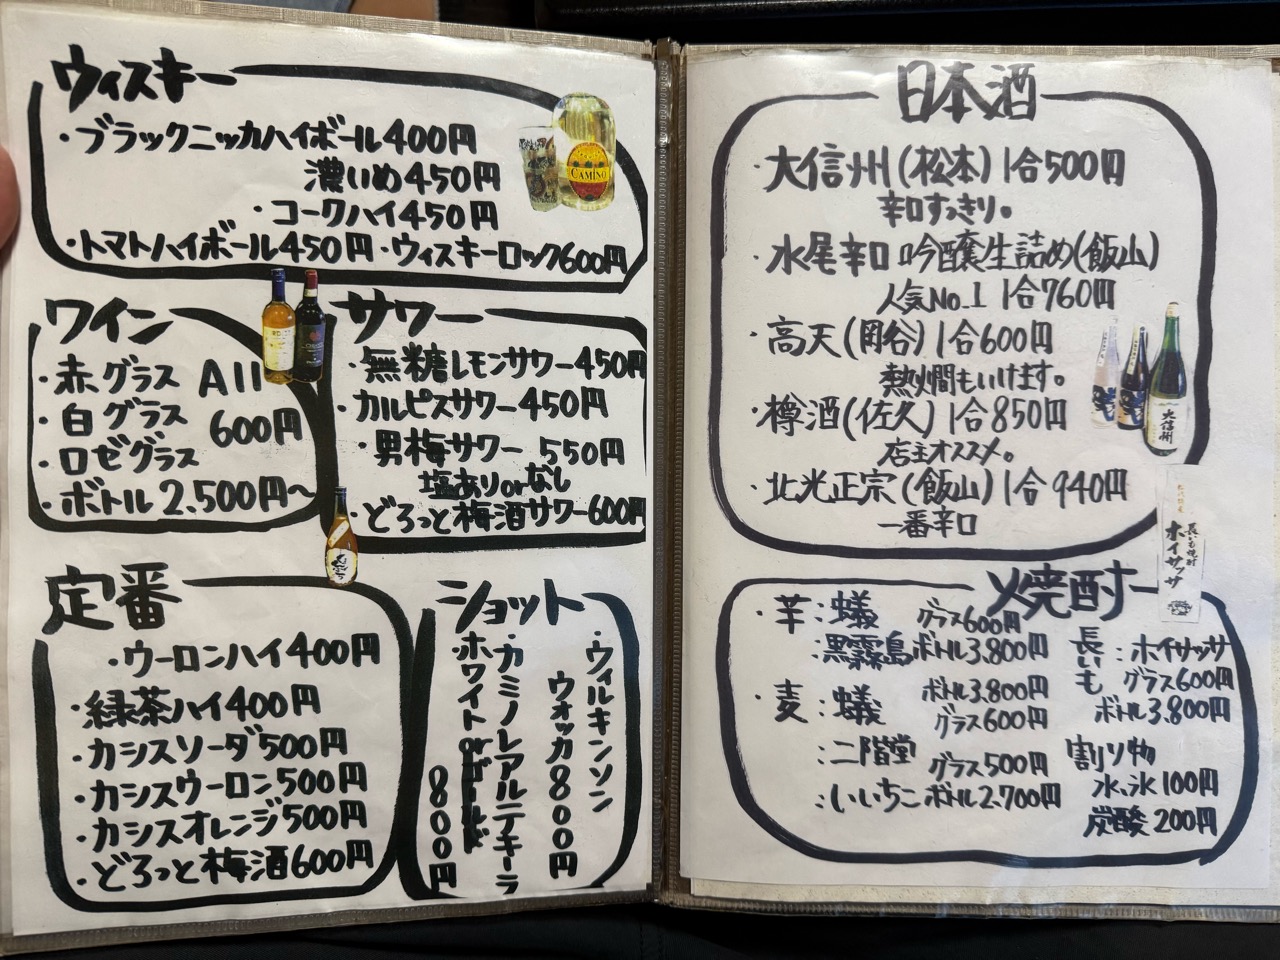 ウィスキー
・ブラックニッカハイボール400円
濃いめ450円
・コークハイ450円
・トマトハイボール450円・ウィスキーロック600円
CAMINO
ワイン
・赤グラス All
・白グラス 600円
・ロゼグラス
・ボトル2.500円〜
サワー
・無糖レモンサワー450円
・カルピスサワー450円
・男梅サワー 550円
塩ありorなし
・どろっと梅酒サワー600円
定番
・ウーロンハイ400円
・緑茶ハイ400円
・カシスソーダ500円
・カシスウーロン500円
・カシスオレンジ500円
・どろっと梅酒600円
ショット
・ウィルキンソン
ウォッカ800円
・カミノレアルテキーラ
ホワイトorゴールド
800円
日本酒
・大信州(松本)1合500円
辛口すっきり。
・水尾辛口 吟醸生詰め(飯山)
人気No.1 1合760円
・高天(岡谷)1合600円
熱燗もいけます。
・樽酒(佐久)1合850円
店主オススメ。
・北光正宗(飯山)1合940円
一番辛口
大信州
長いも焼酎
ホイサッサ
焼酎
・芋:蟻 グラス600円
:黒霧島ボトル3.800円
・麦:蟻 ボトル3.800円
グラス600円
:二階堂 グラス500円
:いいちこボトル2.700円
長いも:ホイサッサ
グラス600円
ボトル3.800円
割り物
水、氷100円
炭酸200円